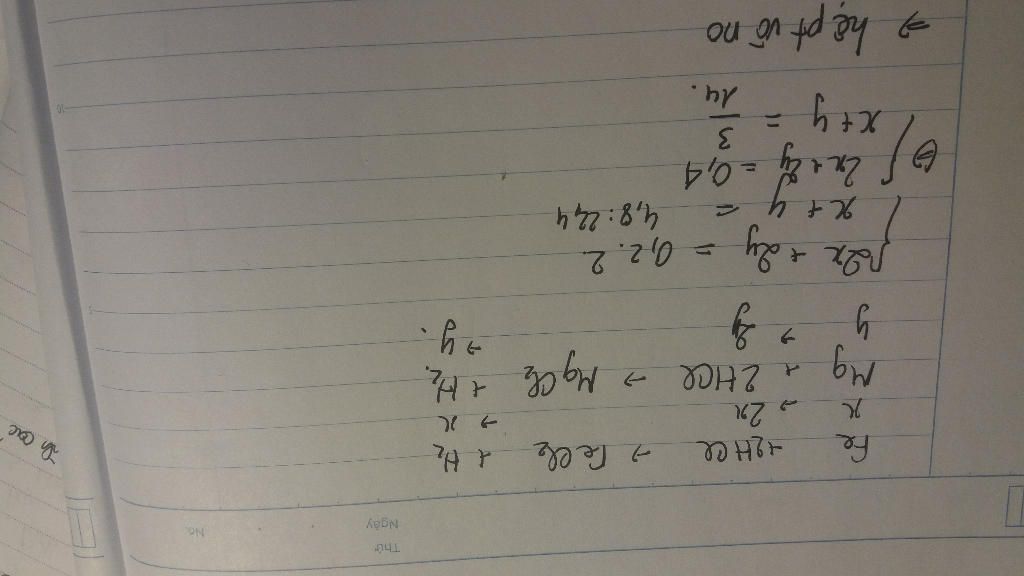 Thứ
Ngày
No.
Fe + 2HCl → FeCl₂ + H₂
x → 2x → x
Mg + 2HCl → MgCl₂ + H₂.
y → 2y → y.
{ 2x + 2y = 0,2.2
x + y = 4,8:22,4
⇔ { 2x + 2y = 0,4
x + y = 3/14.
→ hệ pt vô no